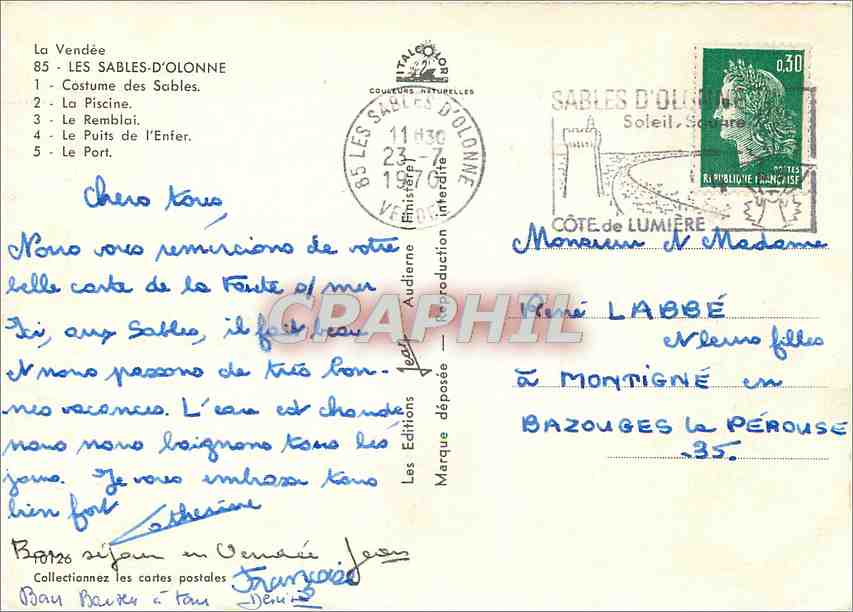 La Vendée
85 - LES SABLES-D'OLONNE
1 - Costume des Sables.
2 - La Piscine.
3 - Le Remblai.
4 - Le Puits de l'Enfer.
5 - Le Port.
ITALCOLOR
COULEURS NATURELLES
85 LES SABLES D'OLONNE
11H30
23-7
1970
VENDEE
SABLES D'OLONNE
Soleil. Square
CÔTE de LUMIÈRE
0,30
POSTES
REPUBLIQUE FRANÇAISE
Chers tous,
Nous vous remercions de votre
belle carte de la Faute s/ mer
Ici, aux Sables, il fait beau
et nous passons de très bon-
nes vacances. L'eau est chaude
nous nous baignons tous les
jours. Je vous embrasse tous
bien fort
Catherine
Bon séjour en Vendée Jean
Françoise
Bons Baisers à tous Denise
10126
Collectionnez les cartes postales
Les Editions Jean Audierne (Finistère)
Marque déposée — Reproduction interdite
CPAPHIL
Monsieur et Madame
René LABBÉ
et leurs filles
à MONTIGNÉ en
BAZOUGES la PÉROUSE
35.